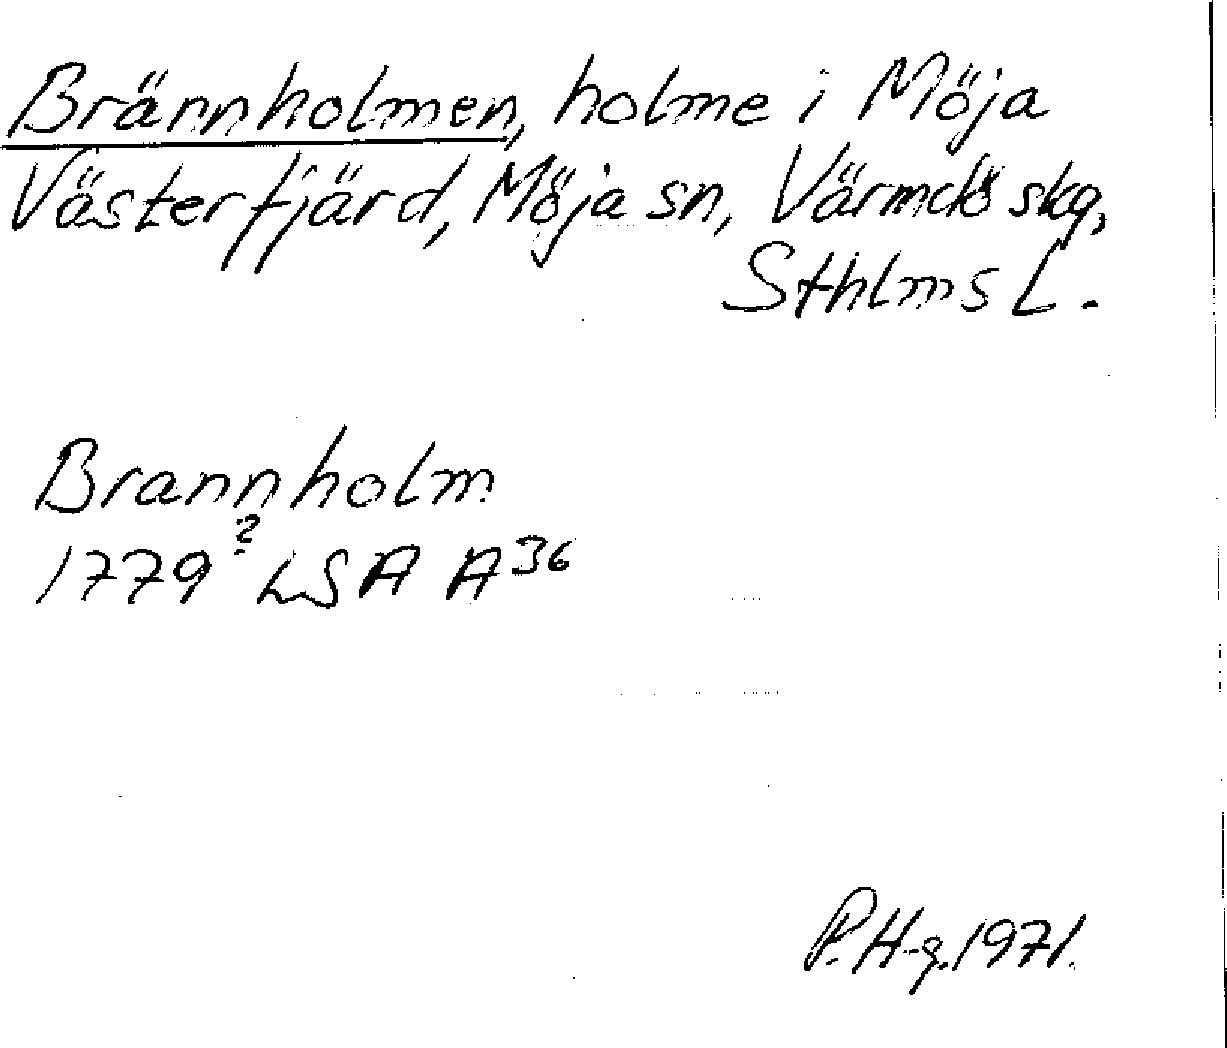 Brännholmen, holme i Möja
Västerfjärd, Möja sn, Värmdö skg,
Sthlms L.
Brannholm
1779? LSA A36
P. H-g. 1971.